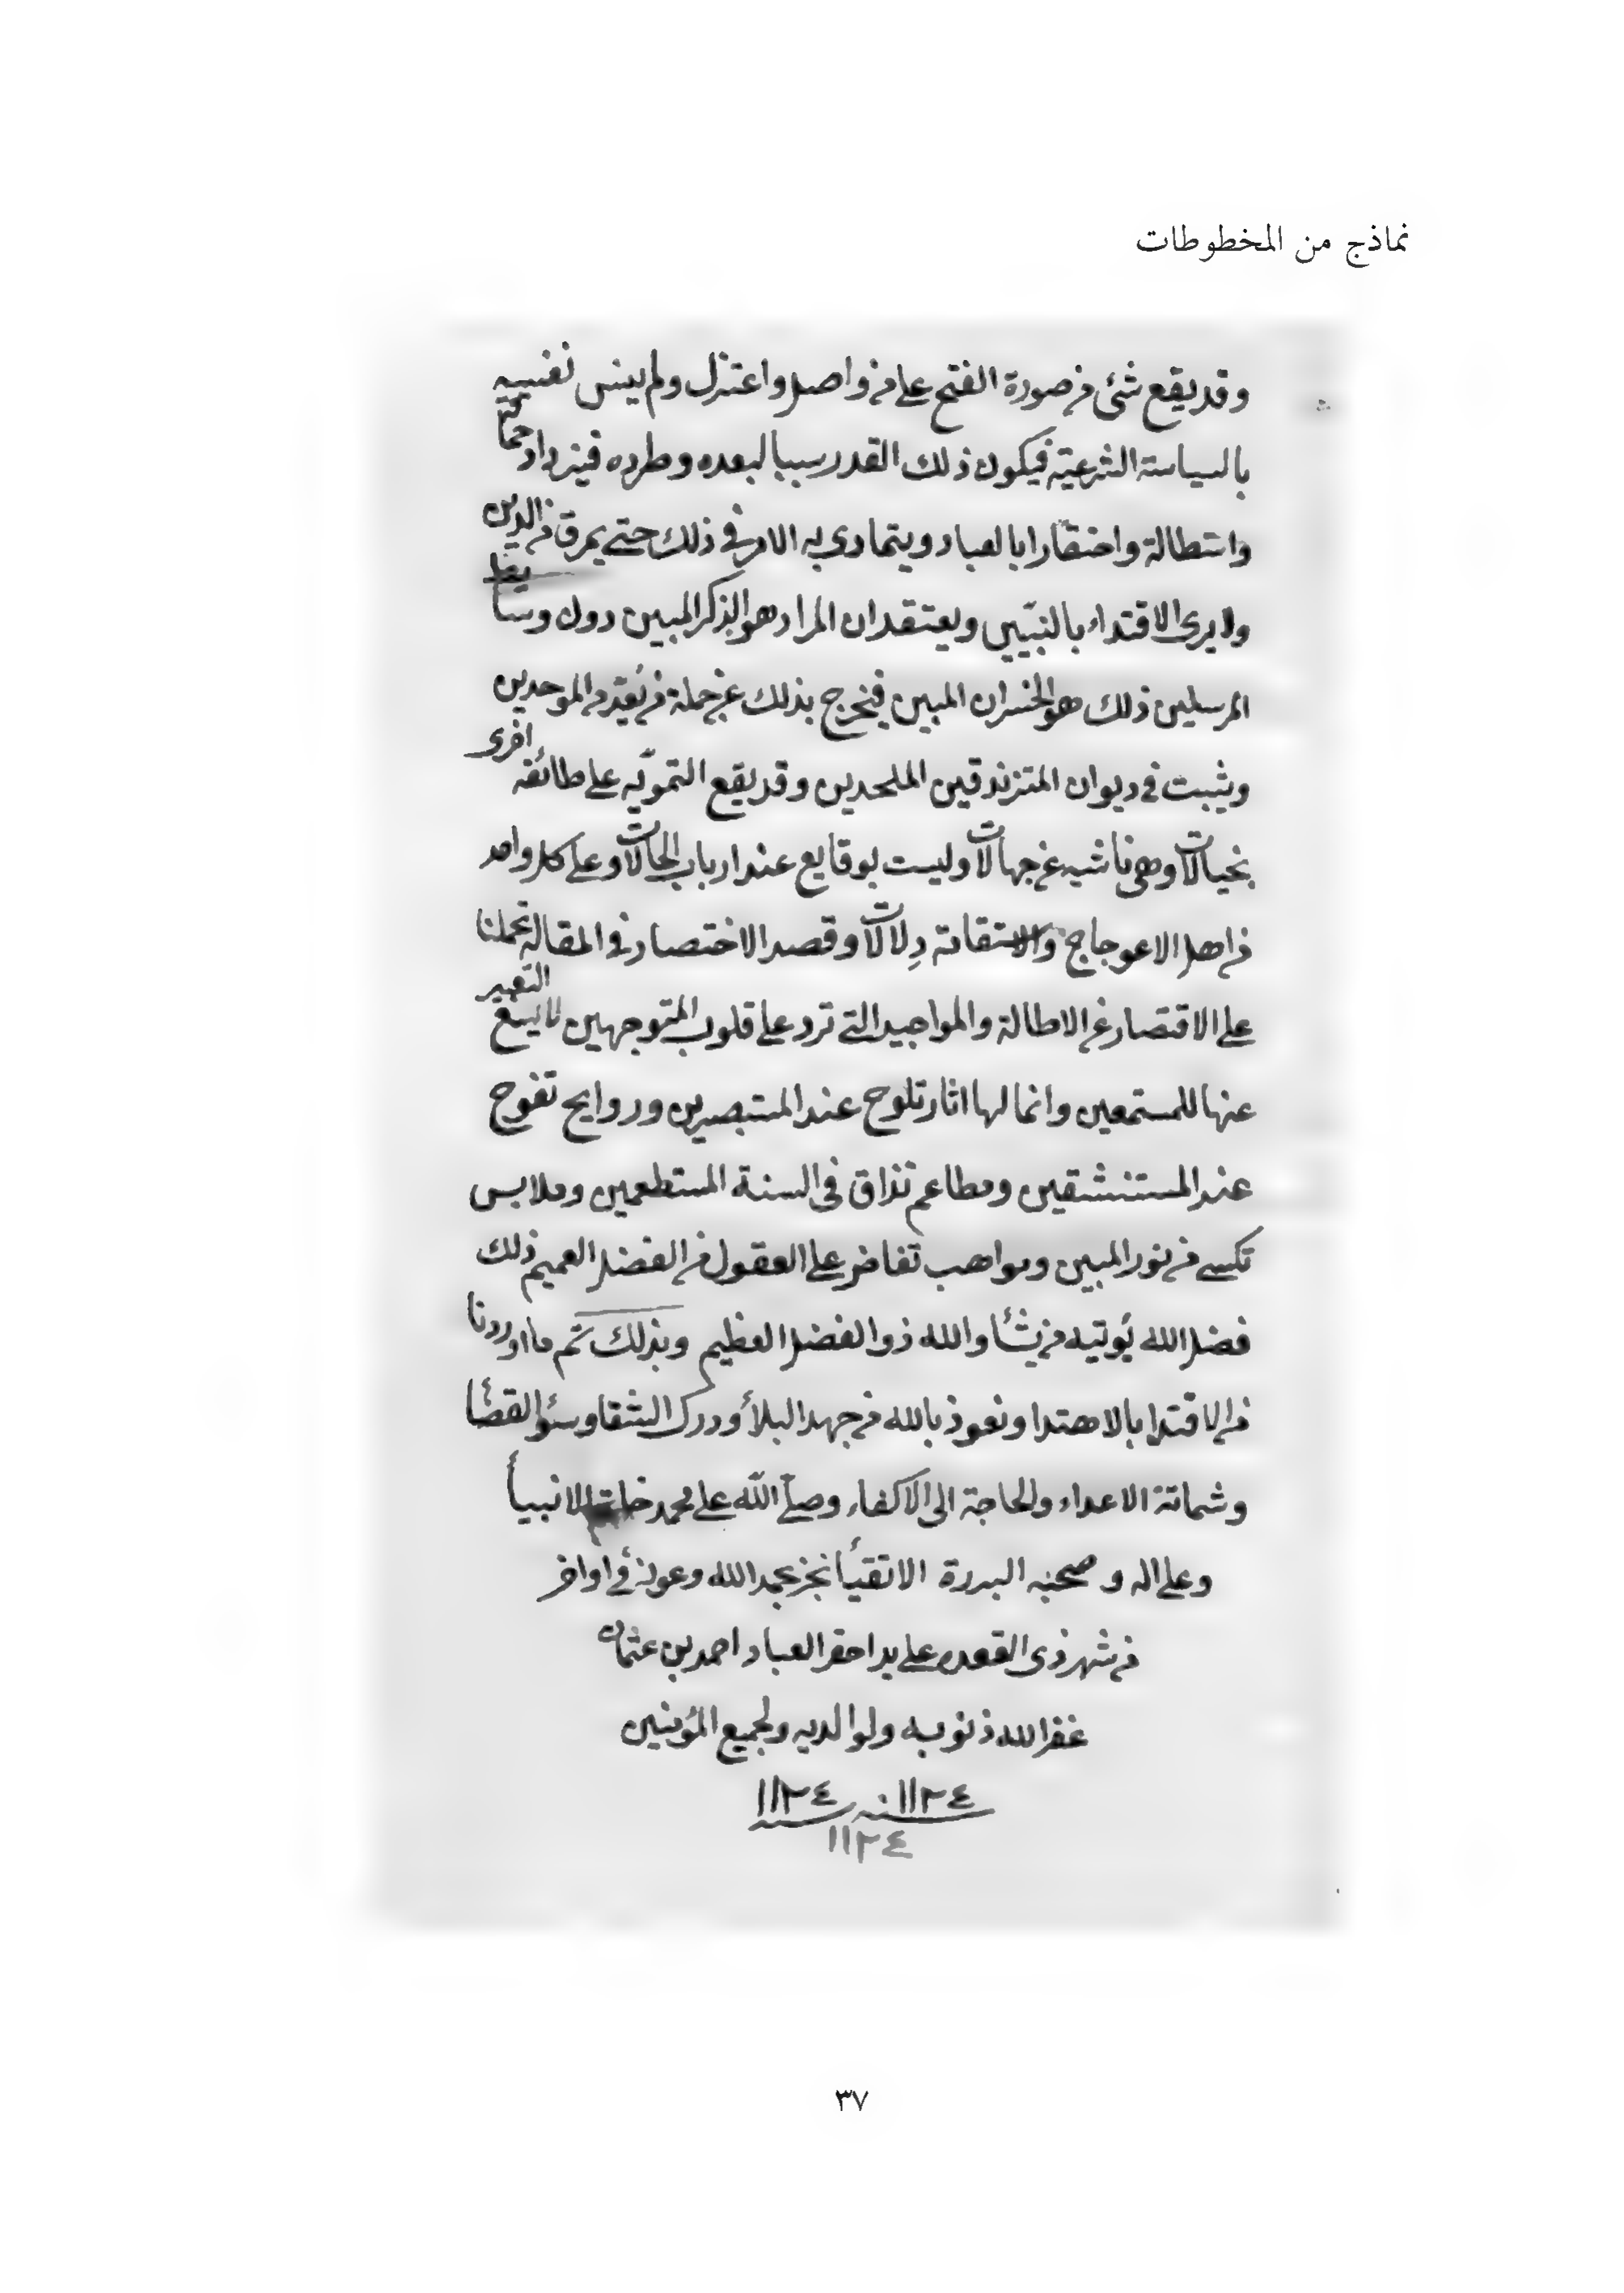 نماذج من المخطوطات
وقد يقع شئ من صورة الفتح على من واصل واعتزل ولم ينس نفسه
بالسياسة الشرعية فيكون ذلك القدر سببا لبعده وطرده فيزداد
واستطالة واحتقارا بالعباد ويتمادى به الامر في ذلك حتى يمرق من الدين
ولا يرى الاقتداء بالنبيين ويعتقد ان المراد هو الذكر المبين دون وسايط
المرسلين ذلك هو الخسران المبين فيخرج بذلك عن جملة من الموحدين
ويثبت في ديوان المتزندقين الملحدين وقد يقع التمويه على طائفة اخرى
بخيالات وهي ناشيه عن جهالات وليست بوقايع عند ارباب الحالات وعلى كل واحد
من اهل الاعوجاج والاستقامة دلالات وقصد الاختصار في المقالة تحملنا
على الاقتصار عن الاطالة والمواجيد التي ترد على قلوب المتوجهين التعبير
عنها للمستمعين وانما لها اثار تلوح عند المستبصرين وروايح تفوح
عند المستنشقين ومطاعم تذاق في السنة المستطعمين وملابس
تكسى من نور المبين ومواهب تفاض على العقول من الفضل العميم ذلك
فضل الله يؤتيه من يشأ والله ذو الفضل العظيم وبذلك تم ما اوردنا
من الاقتدا بالاهتدا ونعوذ بالله من جهد البلأ ودرك الشقا وسؤ القضأ
وشماتة الاعداء والحاجة الى الاكفاء وصلى الله على محمد خاتم الانبيأ
وعلى اله وصحبه البررة الاتقيأ نجز بحمد الله وعونه في اواخر
من شهر ذى القعده على يد احقر العباد احمد بن عثمان
غفر الله ذنوبه ولوالديه ولجميع المؤمنين
١١٢٤ سنه ١١٢٤
١١٢٤
٣٧